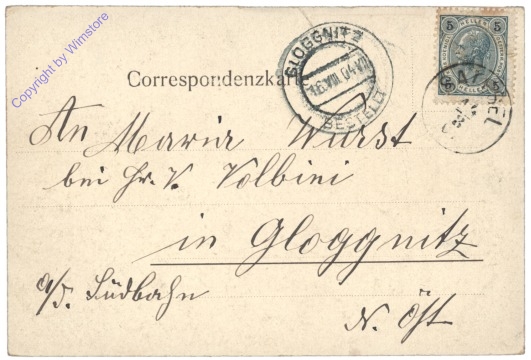 Copyright by Winstore
Correspondenzkar
GLOGGNITZ
16.VIII.04
BESTELLT
5 HELLER 5
An Maria Wurst
bei Hr. V. Volbini
in Gloggnitz
a/d. Südbahn
N. Öst